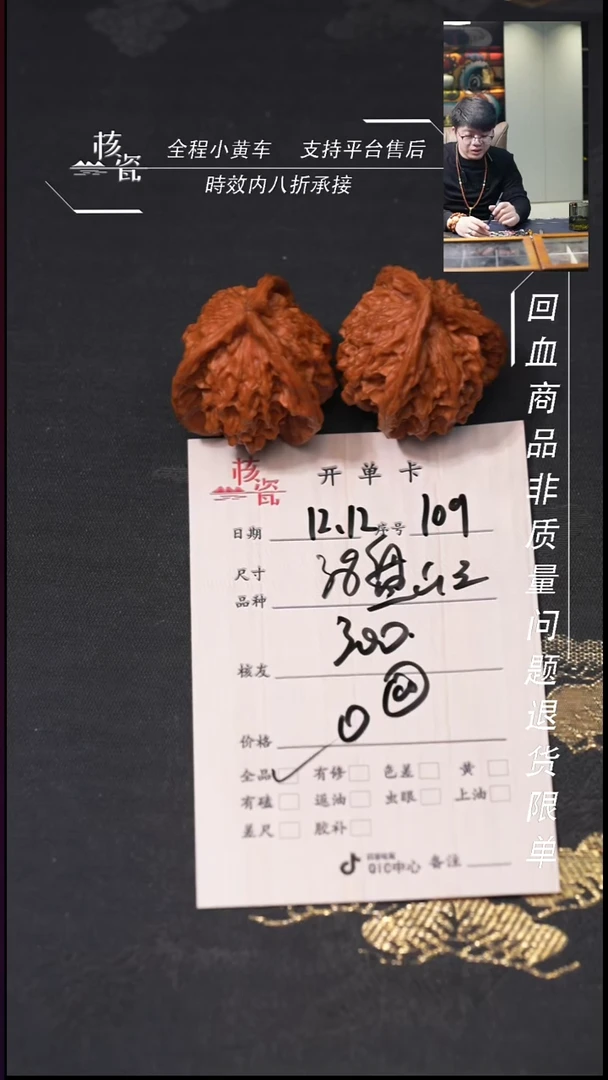 核瓷
全程小黄车 支持平台售后
時效内八折承接
回血商品非质量问题退货限单
核瓷
开单卡
日期 12.12 序号 109
尺寸 38
品种
300.
核友
价格
全品 有修 色差 黄
有磕 返油 虫眼 上油
差尺 胶补
QIC中心 备注